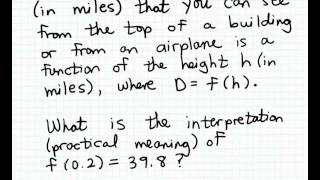 (in miles) that you can see
from the top of a building
or from an airplane is a
function of the height h (in
miles), where D = f(h).
What is the interpretation
(practical meaning) of
f(0.2) = 39.8 ?